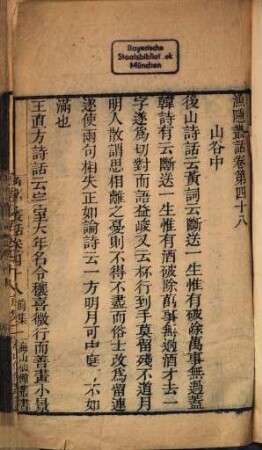 Bayerische
Staatsbibliothek
München
漁隱叢話卷第四十八
山谷中
後山詩話云黃詞云斷送一生惟有破除萬事無過蓋
韓詩有云斷送一生惟有酒破除萬事無過酒才去一
字遂爲切對而語益峻又云杯行到手莫留殘不道月
明人散謂思相離之憂則不得不盡而俗士改爲留連
遂使兩句相失正如論詩云一方明月可中庭可不如
滿也
王直方詩話云宗室大年名令穰喜微行而善畫小景